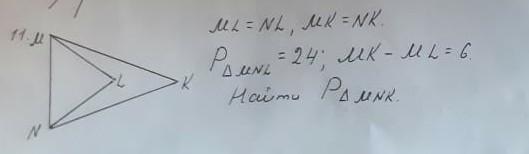 11. M
L
K
N
ML = NL, MK = NK.
P△MNL = 24; MK - ML = 6.
Найти P△MNK.